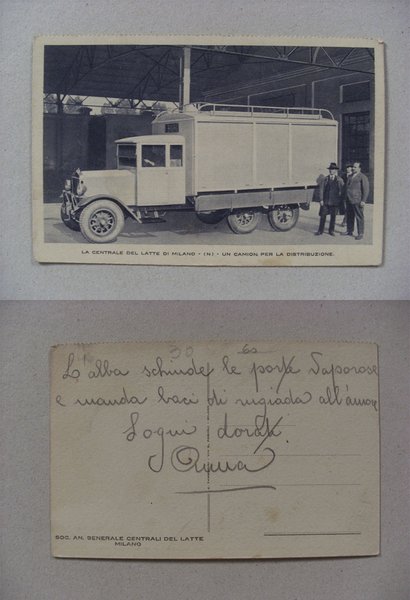 LA CENTRALE DEL LATTE DI MILANO - (N) - UN CAMION PER LA DISTRIBUZIONE.
30 60
L'alba schiude le porte Vaporose
e manda baci di rugiada all'amore
Sogni dorati
Anna
SOC. AN. GENERALE CENTRALI DEL LATTE
MILANO